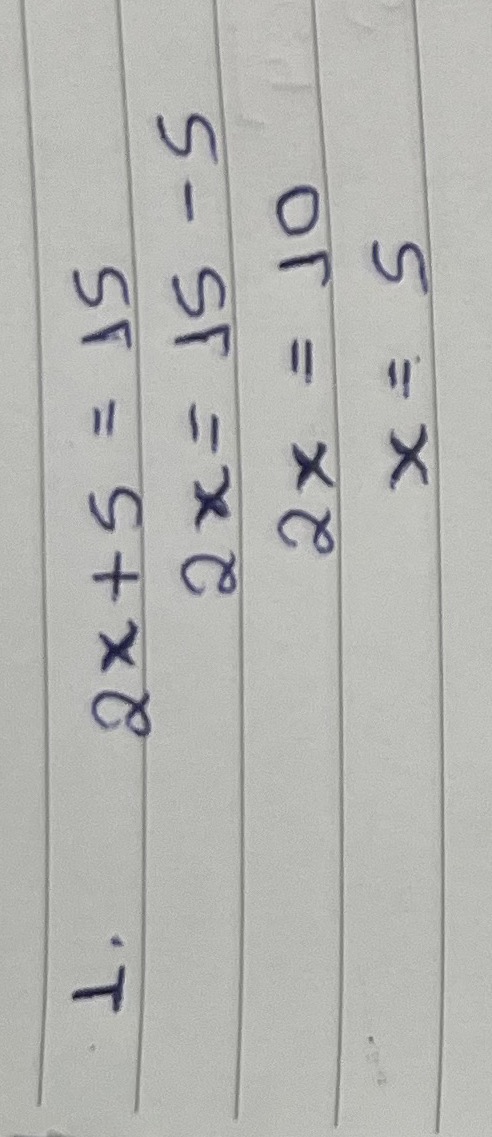 1. 2x + 5 = 15
2x = 15 - 5
2x = 10
x = 5